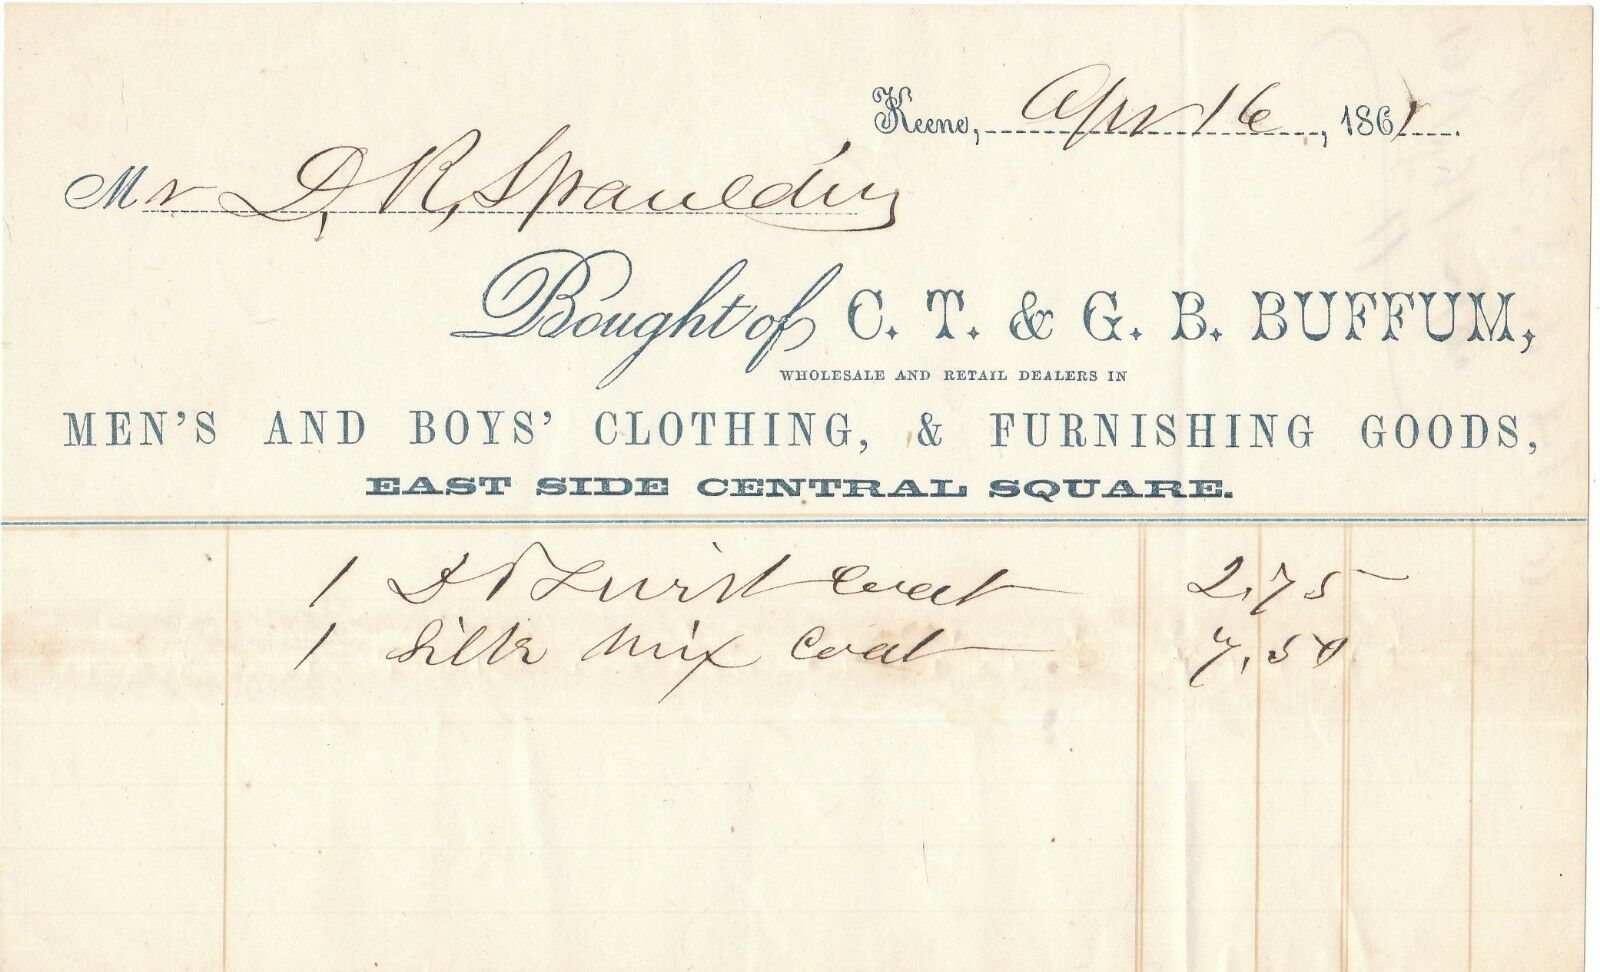 Keene, Apr 16, 1861.
Mr D. R. Spaulding
Bought of C. T. & G. B. BUFFUM,
WHOLESALE AND RETAIL DEALERS IN
MEN'S AND BOYS' CLOTHING, & FURNISHING GOODS,
EAST SIDE CENTRAL SQUARE.
1 Twist Coat 2.75
1 Silk Mix Coat 7.50